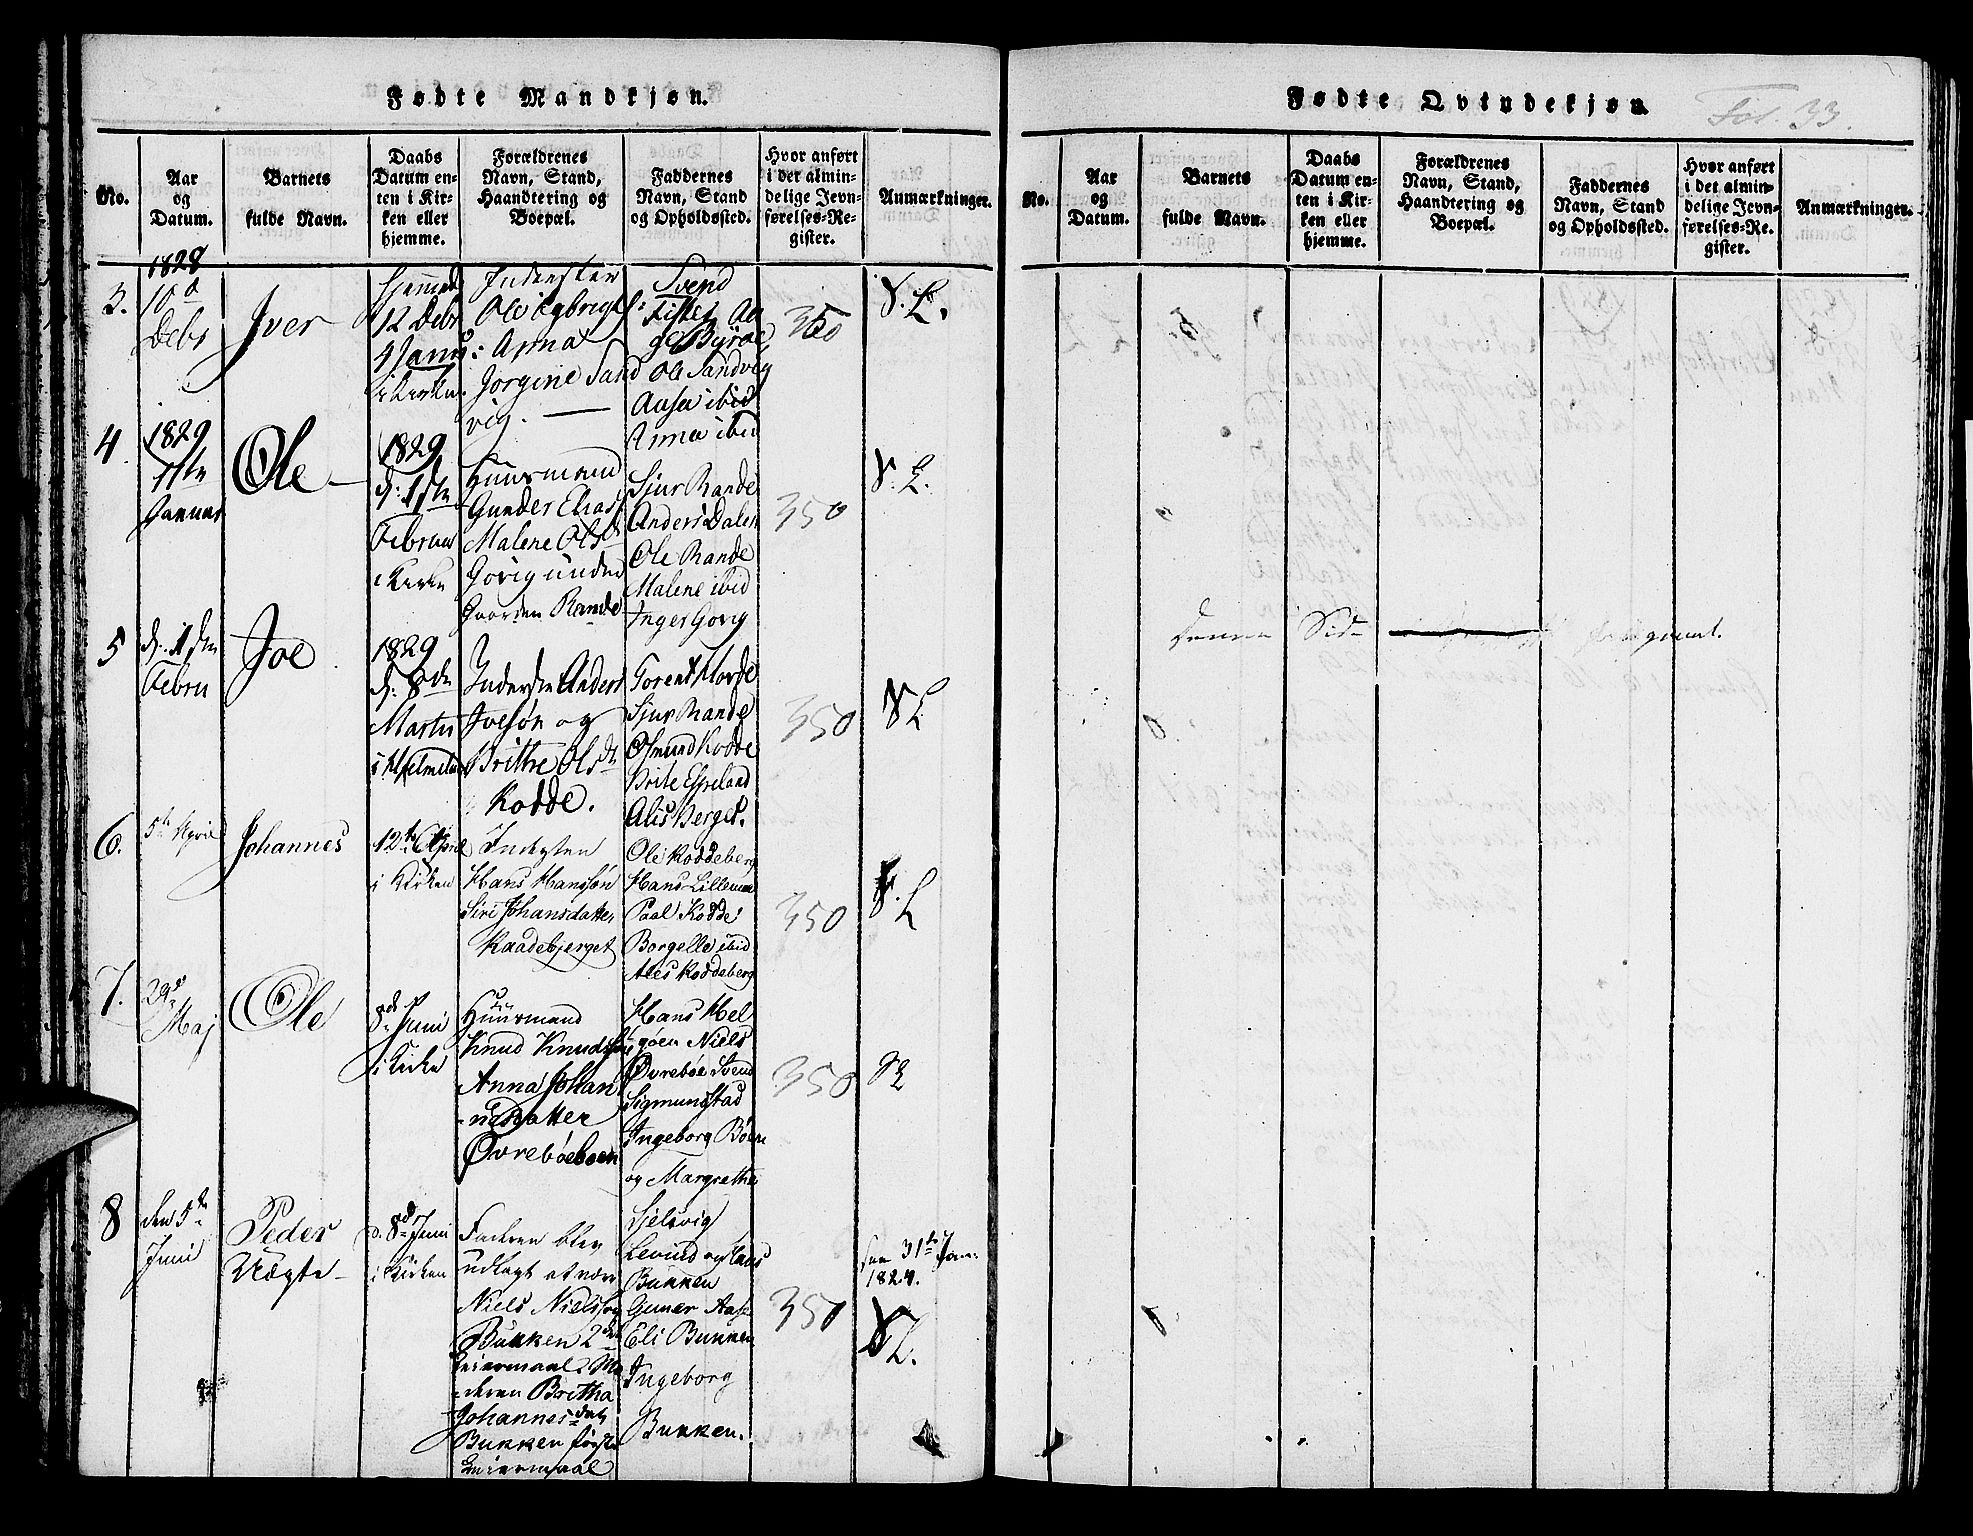 Fødte Mandkjøn.
No.
Aar
og
Datum.
Barnets
fulde Navn.
Daabs
Datum en-
ten i Kir-
ken eller
hjemme.
Forældrenes
Navn, Stand,
Haandtering og
Boepæl.
Faddernes
Navn, Stand
og Opholdssted.
Hvor anført
i det almin-
delige Jevn-
førelses-Re-
gister.
Anmærkninger.
3.
1828
10
Debr
Iver
hjemmed
12 Debr
4 Janu:
i Kirken
Inderster
Ole Egbrigts
Anna
Jorgine Sand
vig.
Svend
Ole Sandvig
Aasa ibid
Anna ibid
350
S. L.
4.
1829
11te
Januar
Ole
1829
d: 1ste
Februar
i Kirke
Huusmand
Gunder Elias
Malene Olsd
Gorig under
Gaarden Rande
Sjur Rande
Anders Dalen
Ole Rande
Malene ibid
Inger Gorig
350
S. L.
5
d: 1ste
Febru
Joe
1829
d: 8de
Marts
i Hjelmeland
Indersten Anders
Ivesøn og
Brithe Olsd
Kodde.
Sjur Rande
Osmund Kodde
Brite Espeland
Alis Berget.
350
S L
6.
5te April
Johannes
12te April
i Kirken
Indersten
Hans Hanssøn
Siri Johansdatter
Kaadebjerget
Ole Koddeberg
Hans Lillemoe
Paal Kodde
Borgelle ibid
Ales Koddeberg
350
S. L
7.
29de
Maj
Ole
8de Juni
i Kirke
Huusmand
Knud Knudssøn
Anna Johan
-nesdatter
Øvrebøeboen
Hans Hel
gøen Niels
Øvrebøe Svend
Sigmundstad
Ingeborg Bøen
og Margrethe
350
S L
8
den 5te
Juni
Peder
Uægte
d. 8de Juni
i Kirken
Faderen blev
udlagt at være
Niels Nielssøn
Bukken 2det
Leiermaal Mo
-deren Britha
Johannesdat
Bukken første
Leiermaal
Sjelsvig
Levind og Hans
Bukken
Gunder Aase
Eli Bukken
Ingeborg
Bukken.
350
31te Jan:
1824.
S L.
Fødte Qvindekjøn.
Fol. 33.
No.
Aar
og
Datum.
Barnets
fulde Navn.
Daabs
Datum en-
ten i Kir-
ken eller
hjemme.
Forældrenes
Navn, Stand,
Haandtering og
Boepæl.
Faddernes
Navn, Stand
og Opholdssted.
Hvor anført
i det almin-
delige Jevn-
førelses-Re-
gister.
Anmærkninger.
Denne Side